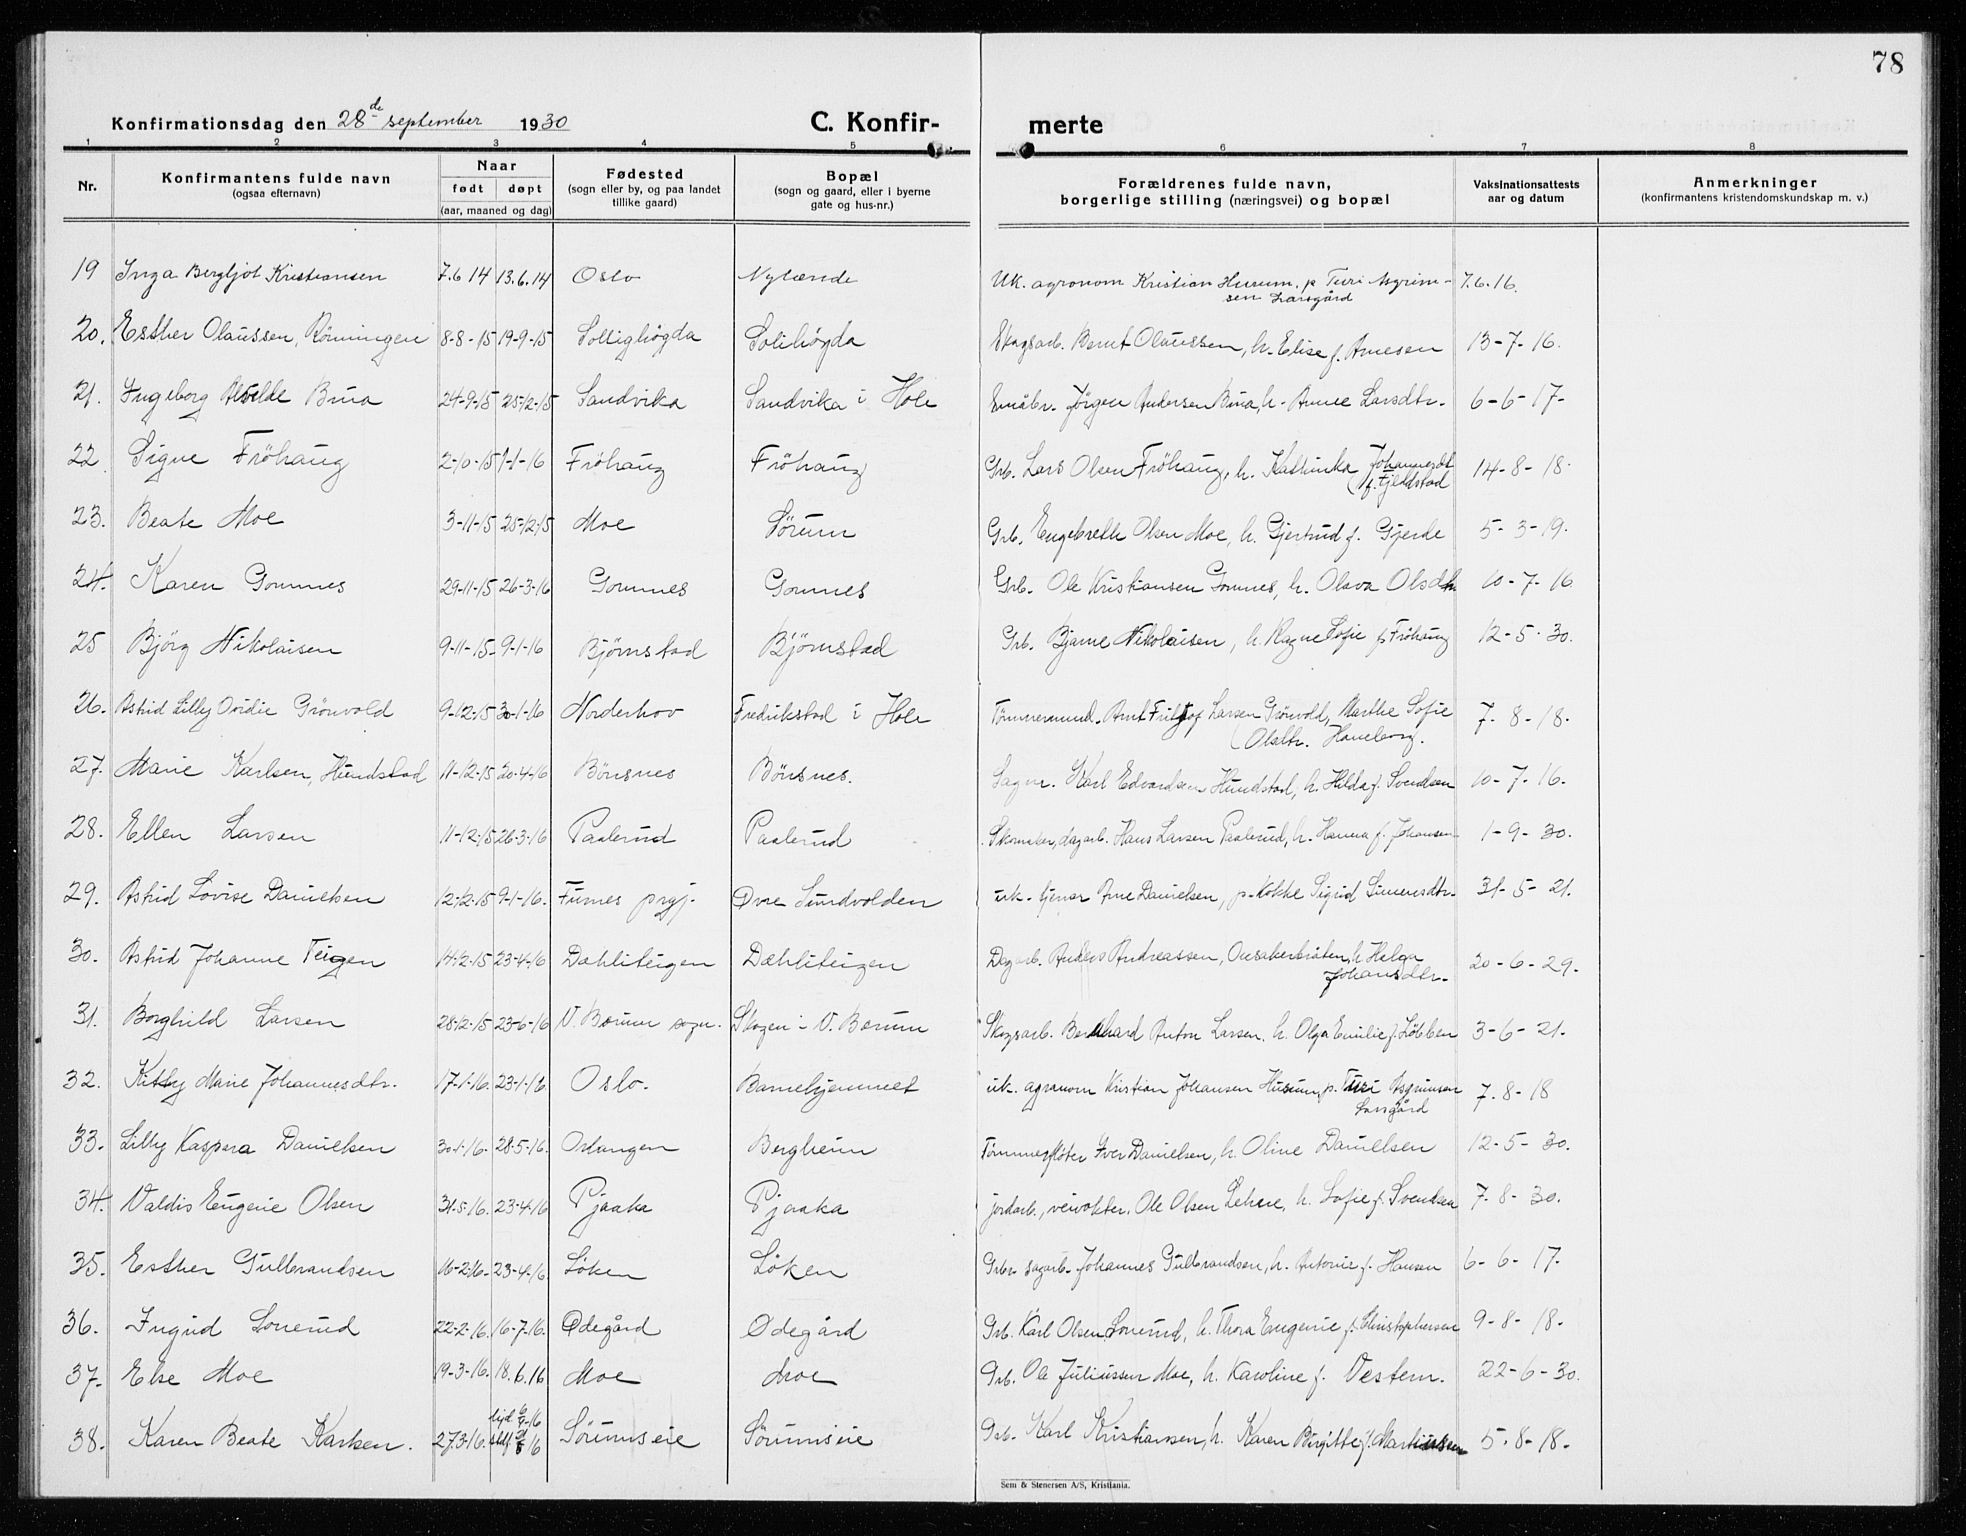 78
Konfirmationsdag den 28de september 1930 C. Konfir- merte
1 2 3 4 5 6 7 8
Nr. Konfirmantens fulde navn (ogsaa efternavn) Naar født døpt (aar, maaned og dag) Fødested (sogn eller by, og paa landet tillike gaard) Bopæl (sogn og gaard, eller i byerne gate og hus-nr.) Forældrenes fulde navn, borgerlige stilling (næringsvei) og bopæl Vaksinationsattests aar og datum Anmerkninger (konfirmantens kristendomskundskap m. v.)
19 Inga Bergljot Kristiansen 7.6 14 13.6.14 Oslo Nylænde Uk. agronom Kristian Husum. p Turi Asgrim- 7.6.16.
sen Larsgård
20. Esther Olaussen, Rönningen 8-8-15 19-9-15 Sollighögda Solihögda Skogsarb. Bernt Olaussen, h. Elise f. Arnesen 13-7-16.
21. Ingeborg Alvilde Bura 24-9-15 25-12-15 Sandvika Sandvika i Hole Småbr. Jörgen Andersen Bura, h. Anne Larsdtr. 6-6-17-
22. Signe Fröhaug 2-10-15 1-1-16 Fröhaug Fröhaug Grb. Lars Olsen Fröhaug, h. Kathinka Johannesdt 14-8-18.
f. Fjeldstad
23. Beate Moe 3-11-15 25-12-15 Moe Sörum Grb. Engebreth Olsen Moe, h. Gjertrud f. Gjerde 5-3-19.
24. Karen Gomnes 29-11-15 26-3-16 Gomnes Gomnes Grb. Ole Kristiansen Gomnes, h. Olava Olsdtr. 10-7-16
25 Björg Nikolaisen 9-11-15- 9-1-16 Bjørnstad Björnstad Grb. Bjarne Nikolaisen, h. Ragne Sofie f Fröhaug 12-5-30.
26. Astrid Lilly Ovidie Grönvold 9-12-15 30-1-16 Norderhov Fredrikstad i Hole Tömmermand. Arnt Fritjof Larsen Grönvold, Marthe Sofie 7-8-18.
Olsdtr. Haneborg.
27. Marie Karlsen, Hundstad 11-12-15 20-4-16 Bönsnes Bönsnes. Sagm. Karl Edvardsen Hundstad, h. Hilda f. Svendsen 10-7-16.
28. Ellen Larsen 11-12-15 26-3-16 Paalerud Paalerud Skomaker, dagarb. Hans Larsen Paalerud, h. Hanna f. Johansen 1-9-30.
29. Astrid Lovise Danielsen 12-12-15 9-1-16. Furnes prgj. Øvre Sundvolden uk. tjener Arne Danielsen, p. Kokke Sigrid Simensdtr. 31-5-21.
30. Astrid Johanne Teigen 14-12-15 23-4-16 Dæhliteigen Dæhliteigen Dagarb. Anders Andreassen, Onsakerbråten, h Helga 20-6-29.
Johansdtr.
31. Borghild Larsen 28-12-15 23-6-16 V. Bærum sogn. Skogen i V. Bærum Skogsarb. Bernhard Anton Larsen, h. Olga Emilie f. Löbben 3-6-21.
32. Kitty Marie Johannesdtr. 17-1-16. 23-1-16 Oslo. Barnehjemmet uk. agronom Kristian Johansen Husum, p. Turi Asgrimsen 7.8-18
Larsgård
33. Lilly Kaspara Danielsen 30-1-16. 28-5-16. Oslangen Bergheim Tömmerflöter Iver Danielsen, h. Oline Danielsen 12-5-30.
34. Valdis Eugenie Olsen 31-5-16. 23-4-16 Pjaaka Pjaaka jordarb., veivokter. Ole Olsen Lehne, h. Sofie f. Svendsen 7-8-30.
35. Esther Gulbrandsen 16-2-16. 23-4-16. Löken Löken Grbr. sagarb. Johannes Gulbrandsen, h. Antonie f. Hansen 6-6-17.
36. Ingrid Lonerud 22-2-16. 16-7-16. Ødegård Ødegård Grb. Karl Olsen Lonerud, h. Thora Eugenie f. Christophersen 9-8-18.
37. Else Moe 19-3-16. 18.6.16 Moe Moe Grb. Ole Juliussen Moe, h. Karoline f. Vestern. 22-6-30.
38. Karen Beate Karlsen. 27.3-16. Sörumseie Sörumseie Grb. Karl Kristiansen, h. Karen Birgitte f. Martinssen 5-8-18-
Sem & Stenersen A/S, Kristiania.